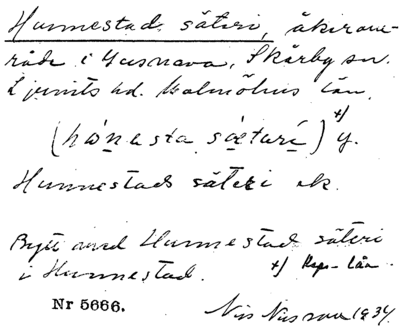 Hunnestad säteri, åkerom-
råde i Gusnava, Skårby sn.
Ljunits hd. Malmöhus län.
(hȯnesta sætarí) +) y.
Hunnestads säteri ek.
Bytt med Hunnestad säteri
i Hunnestad. +) Rep-lån
Nr 5666. 1934